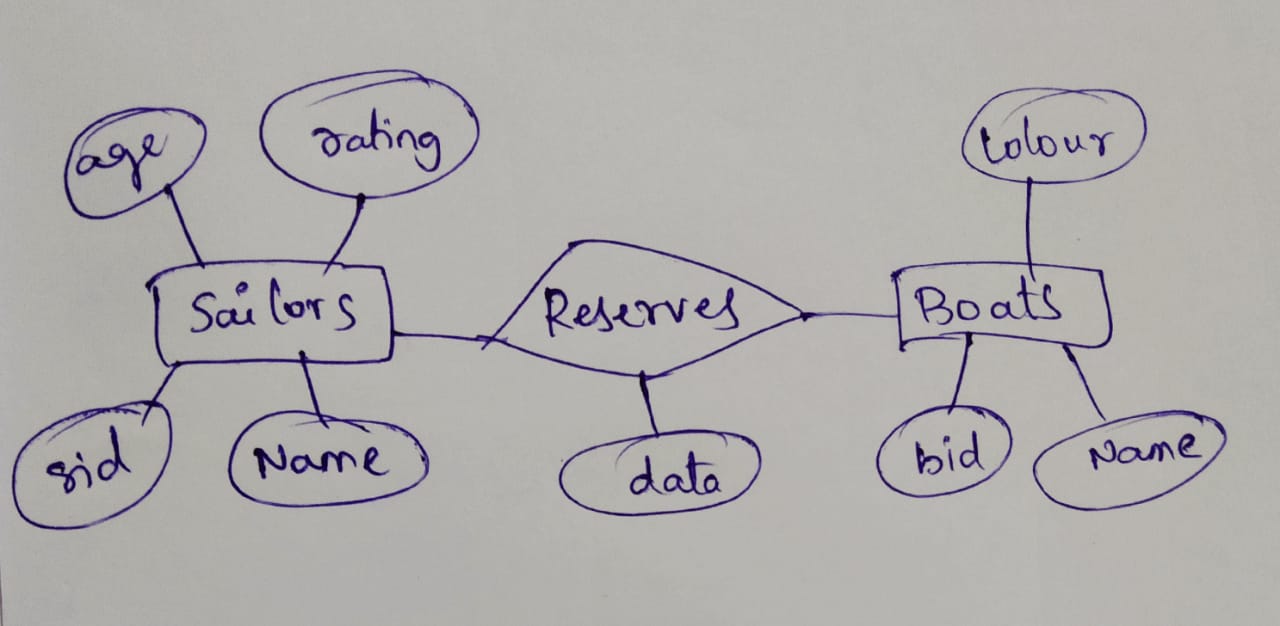 age
rating
Colour
Sailors
Reserves
Boats
sid
Name
data
bid
Name